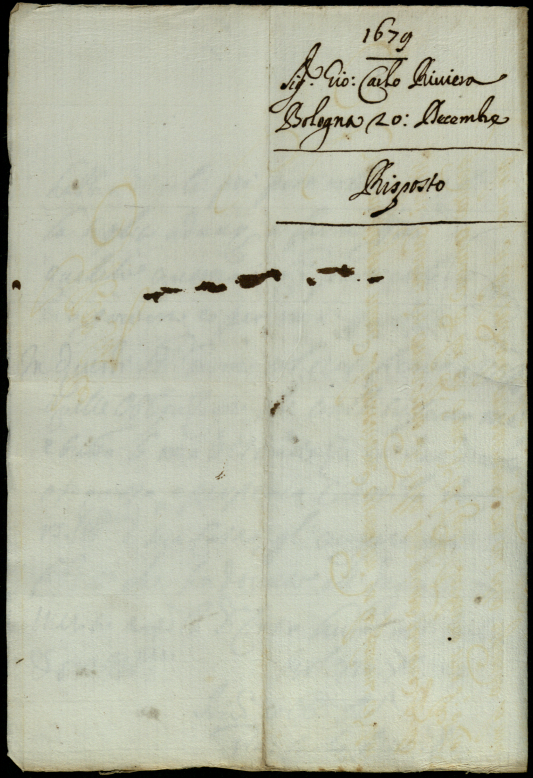 1679
Sig.r Gio: Carlo Riviera
Bologna 20: Decembre
Risposto